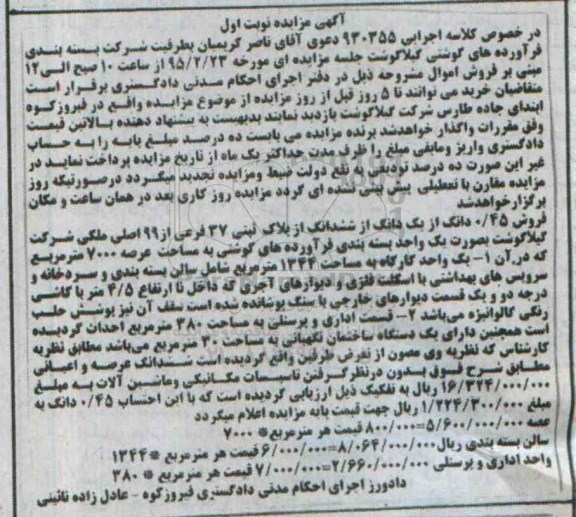 آگهی مزایده نوبت اول
در خصوص کلاسه اجرایی ۹۳۰۳۵۵ دعوی آقای ناصر کریمیان بطرفیت شرکت بسته بندی
فرآورده های گوشتی گیلاگوشت جلسه مزایده ای مورخه ۹۵/۲/۲۳ از ساعت ۱۰ صبح الی۱۲
مبنی بر فروش اموال مشروحه ذیل در دفتر اجرای احکام مدنی دادگستری برقرار است
متقاضیان خرید می توانند تا ۵ روز قبل از روز مزایده از موضوع مزایده واقع در فیروزکوه
ابتدای جاده طارس شرکت گیلاگوشت بازدید نمایند بدیهیست به پیشنهاد دهنده بالاتین قیمت
وفق مقررات واگذار خواهدشد برنده مزایده می بایست ده درصد مبلغ پایه را به حساب
دادگستری واریز ومابقی مبلغ را ظرف مدت حداکثر یک ماه از تاریخ مزایده پرداخت نماید در
غیر این صورت ده درصد تودیعی به نفع دولت ضبط ومزایده تجدید میگردد درصورتیکه روز
مزایده مقارن با تعطیلی پیش بینی نشده ای گردد مزایده روز کاری بعد در همان ساعت و مکان
برگزارخواهدشد
فروش ۰/۴۵ دانگ از یک دانگ از ششدانگ از پلاک ثبتی ۳۷ فرعی از۹۹ اصلی ملکی شرکت
گیلاگوشت بصورت یک واحد بسته بندی فرآورده های گوشتی به مساحت عرصه ۷۰۰۰ مترمربع
که درآن ۱- یک واحد کارگاه به مساحت ۱۳۴۴ مترمربع شامل سالن بسته بندی و سردخانه و
سرویس های بهداشتی با اسکلت فلزی و دیوارهای آجری که داخل تا ارتفاع ۴/۵ متر با کاشی
درجه دو و یک قسمت دیوارهای خارجی با سنگ پوشانده شده است سقف آن نیز پوشش حلب
رنگی گالوانیزه میباشد ۲- قسمت اداری و پرسنلی به مساحت ۳۸۰ مترمربع احداث گردیده
است همچنین دارای یک دستگاه ساختمان نگهبانی به مساحت ۳۰ مترمربع می‌باشد مطابق نظریه
کارشناس که نظریه وی مصون از تعرض طرفین واقع گردیده است ششدانگ عرصه و اعیانی
مطابق شرح فوق بدون درنظرگرفتن تاسیسات مکانیکی وماشین آلات به مبلغ
۱۶/۳۲۴/۰۰۰/۰۰۰ ریال به تفکیک ذیل ارزیابی گردیده است که با این احتساب ۰/۴۵ دانگ به
مبلغ ۱/۲۲۴/۳۰۰/۰۰۰ ریال جهت قیمت پایه مزایده اعلام میگردد
عصه ۵/۶۰۰/۰۰۰/۰۰۰=۸۰۰/۰۰۰ قیمت هر مترمربع* ۷۰۰۰
سالن بسته بندی ریال۸/۰۶۴/۰۰۰/۰۰۰=۶/۰۰۰/۰۰۰ قیمت هر مترمربع *۱۳۴۴
واحد اداری و پرسنلی ۲/۶۶۰/۰۰۰/۰۰۰=۷/۰۰۰/۰۰۰ قیمت هر مترمربع * ۳۸۰
دادورز اجرای احکام مدنی دادگستری فیروزکوه - عادل زاده نائینی